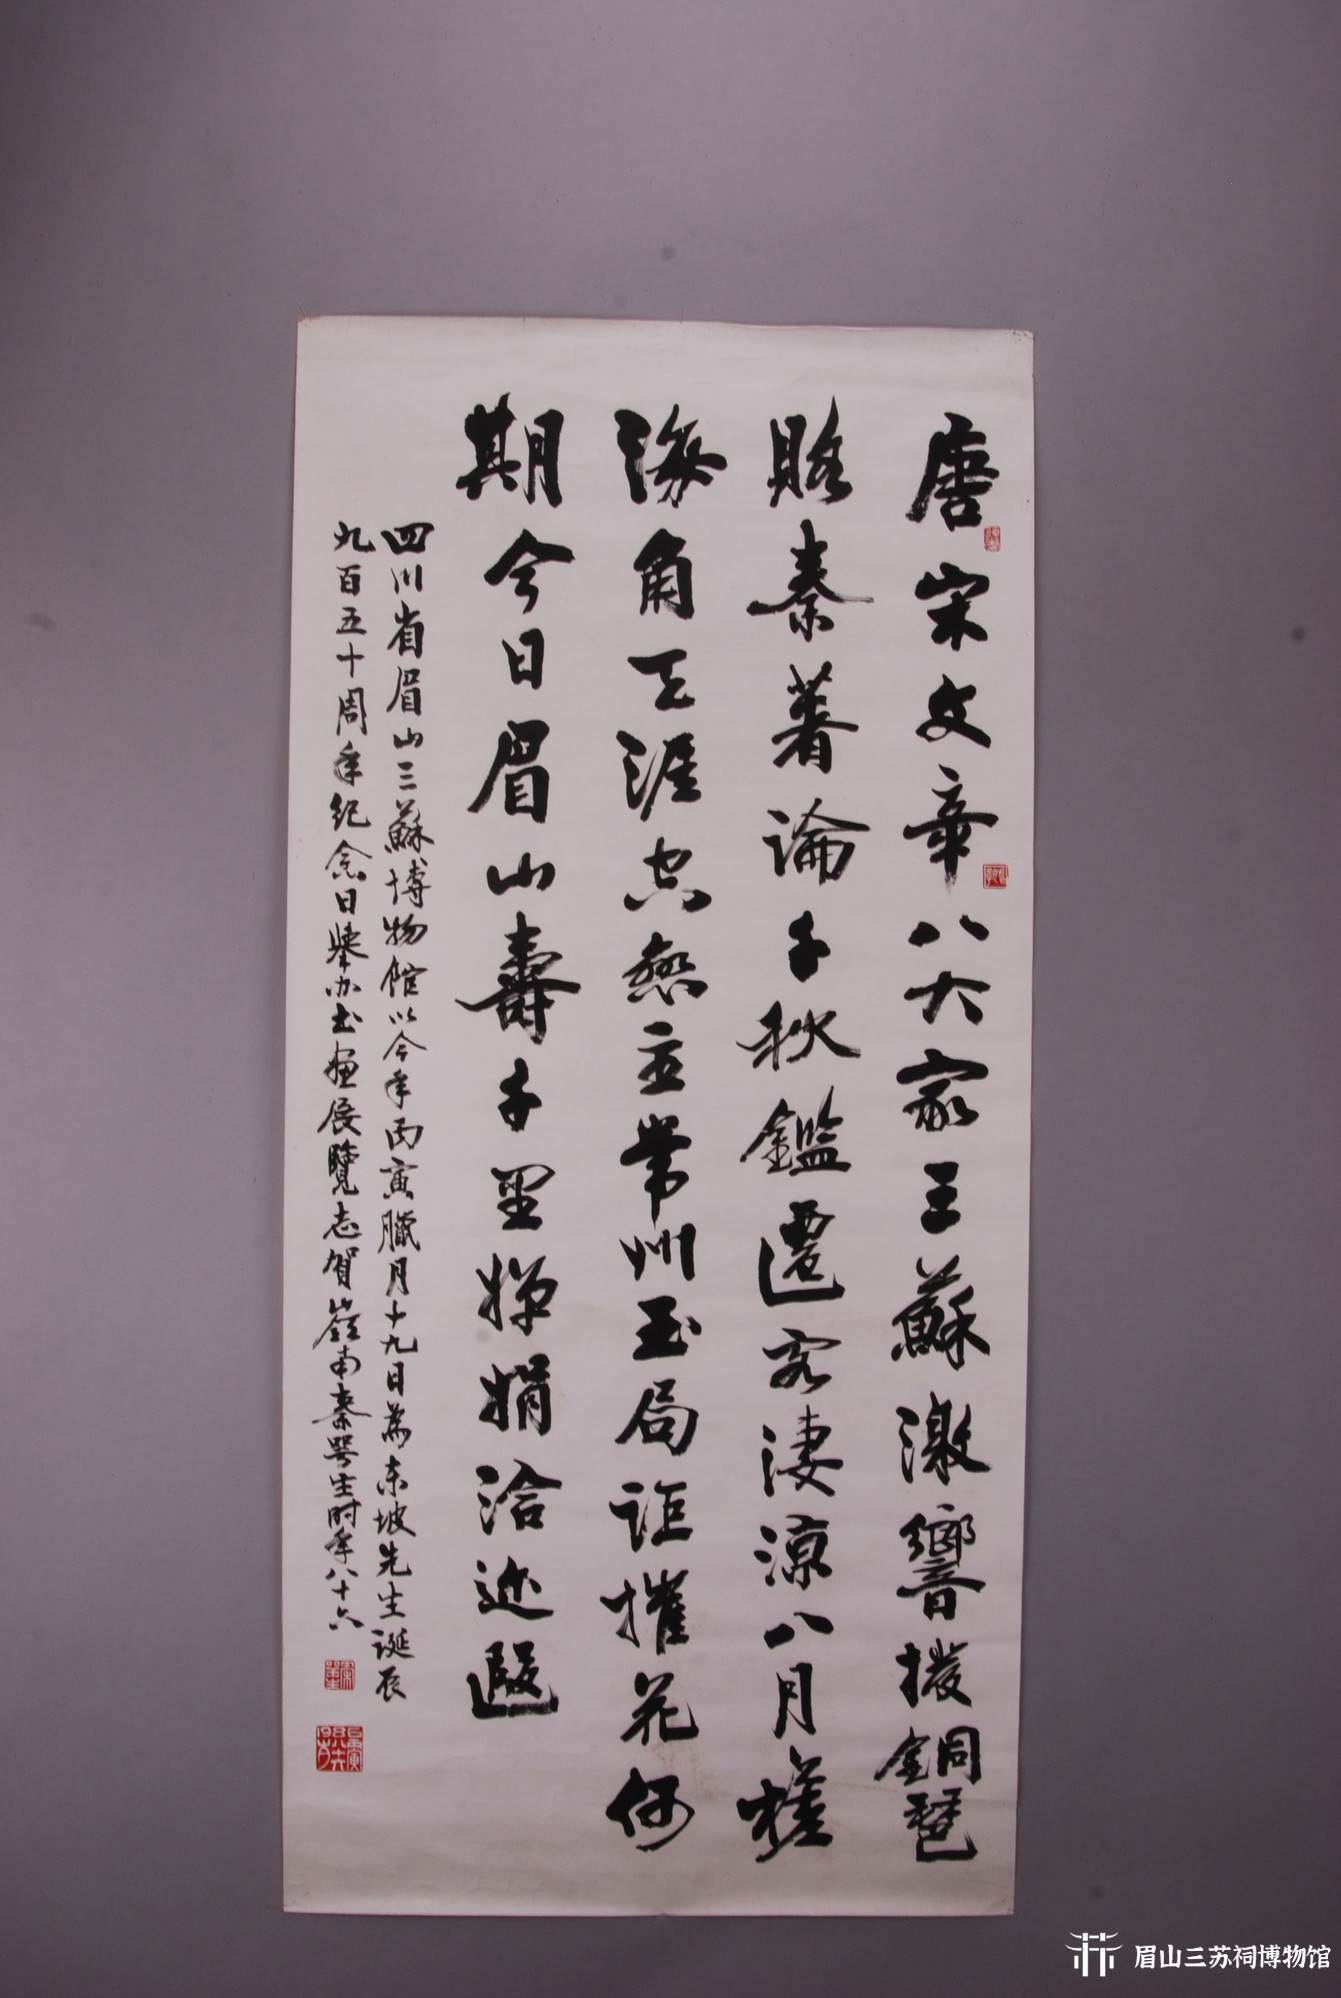 唐宋文章八大家三蘇激響撥銅琶
賂秦著論千秋鑑遷客淒涼八月槎
海角天涯空戀主常州玉局詎摧花何
期今日眉山壽千里嬋娟洽迩遐
四川省眉山三蘇博物館以今年丙寅臘月十九日為東坡先生誕辰
九百五十周年紀念日舉办書画展覽志賀嶺南秦咢生时年八十六
眉山三苏祠博物馆